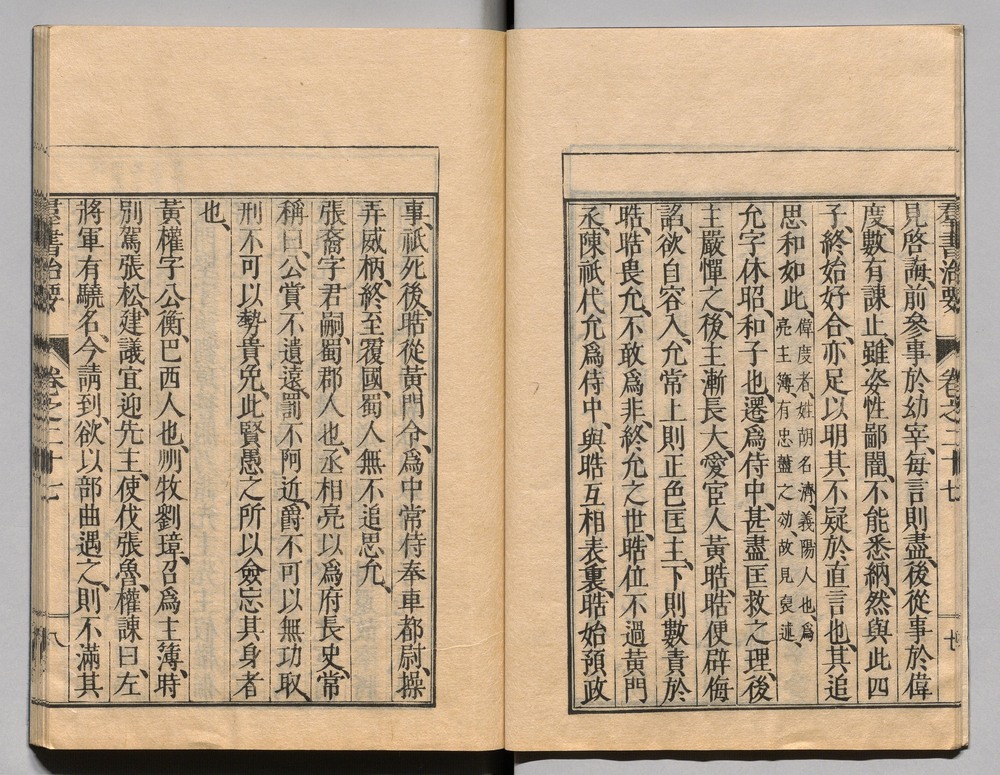 羣書治要 卷之二十七 七
見啓誨、前參事於幼宰、每言則盡、後從事於偉
度、數有諫止、雖姿性鄙闇、不能悉納、然與此四
子、終始好合、亦足以明其不疑於直言也、其追
思和如此、偉度者、姓胡名濟、義陽人也、爲
亮主簿、有忠藎之効、故見褒述、
允字休昭、和子也、遷爲侍中、甚盡匡救之理、後
主嚴憚之、後主漸長大、愛宦人黃晧、晧便辟侮
諂、欲自容入、允常上則正色匡主、下則數責於
晧、晧畏允、不敢爲非、終允之世、晧位不過黃門
丞、陳祗代允爲侍中、與晧互相表裏、晧始預政
事、祗死後、晧從黃門令、爲中常侍奉車都尉、操
弄威柄、終至覆國、蜀人無不追思允、
張裔字君嗣、蜀郡人也、丞相亮以爲府長史、常
稱曰、公賞不遺遠、罰不阿近、爵不可以無功取、
刑不可以勢貴免、此賢愚之所以僉忘其身者
也、
黃權字公衡、巴西人也、州牧劉璋、召爲主簿、時
別駕張松、建議宜迎先主、使伐張魯、權諫曰、左
將軍有驍名、今請到、欲以部曲遇之、則不滿其
羣書治要 卷之二十七 八